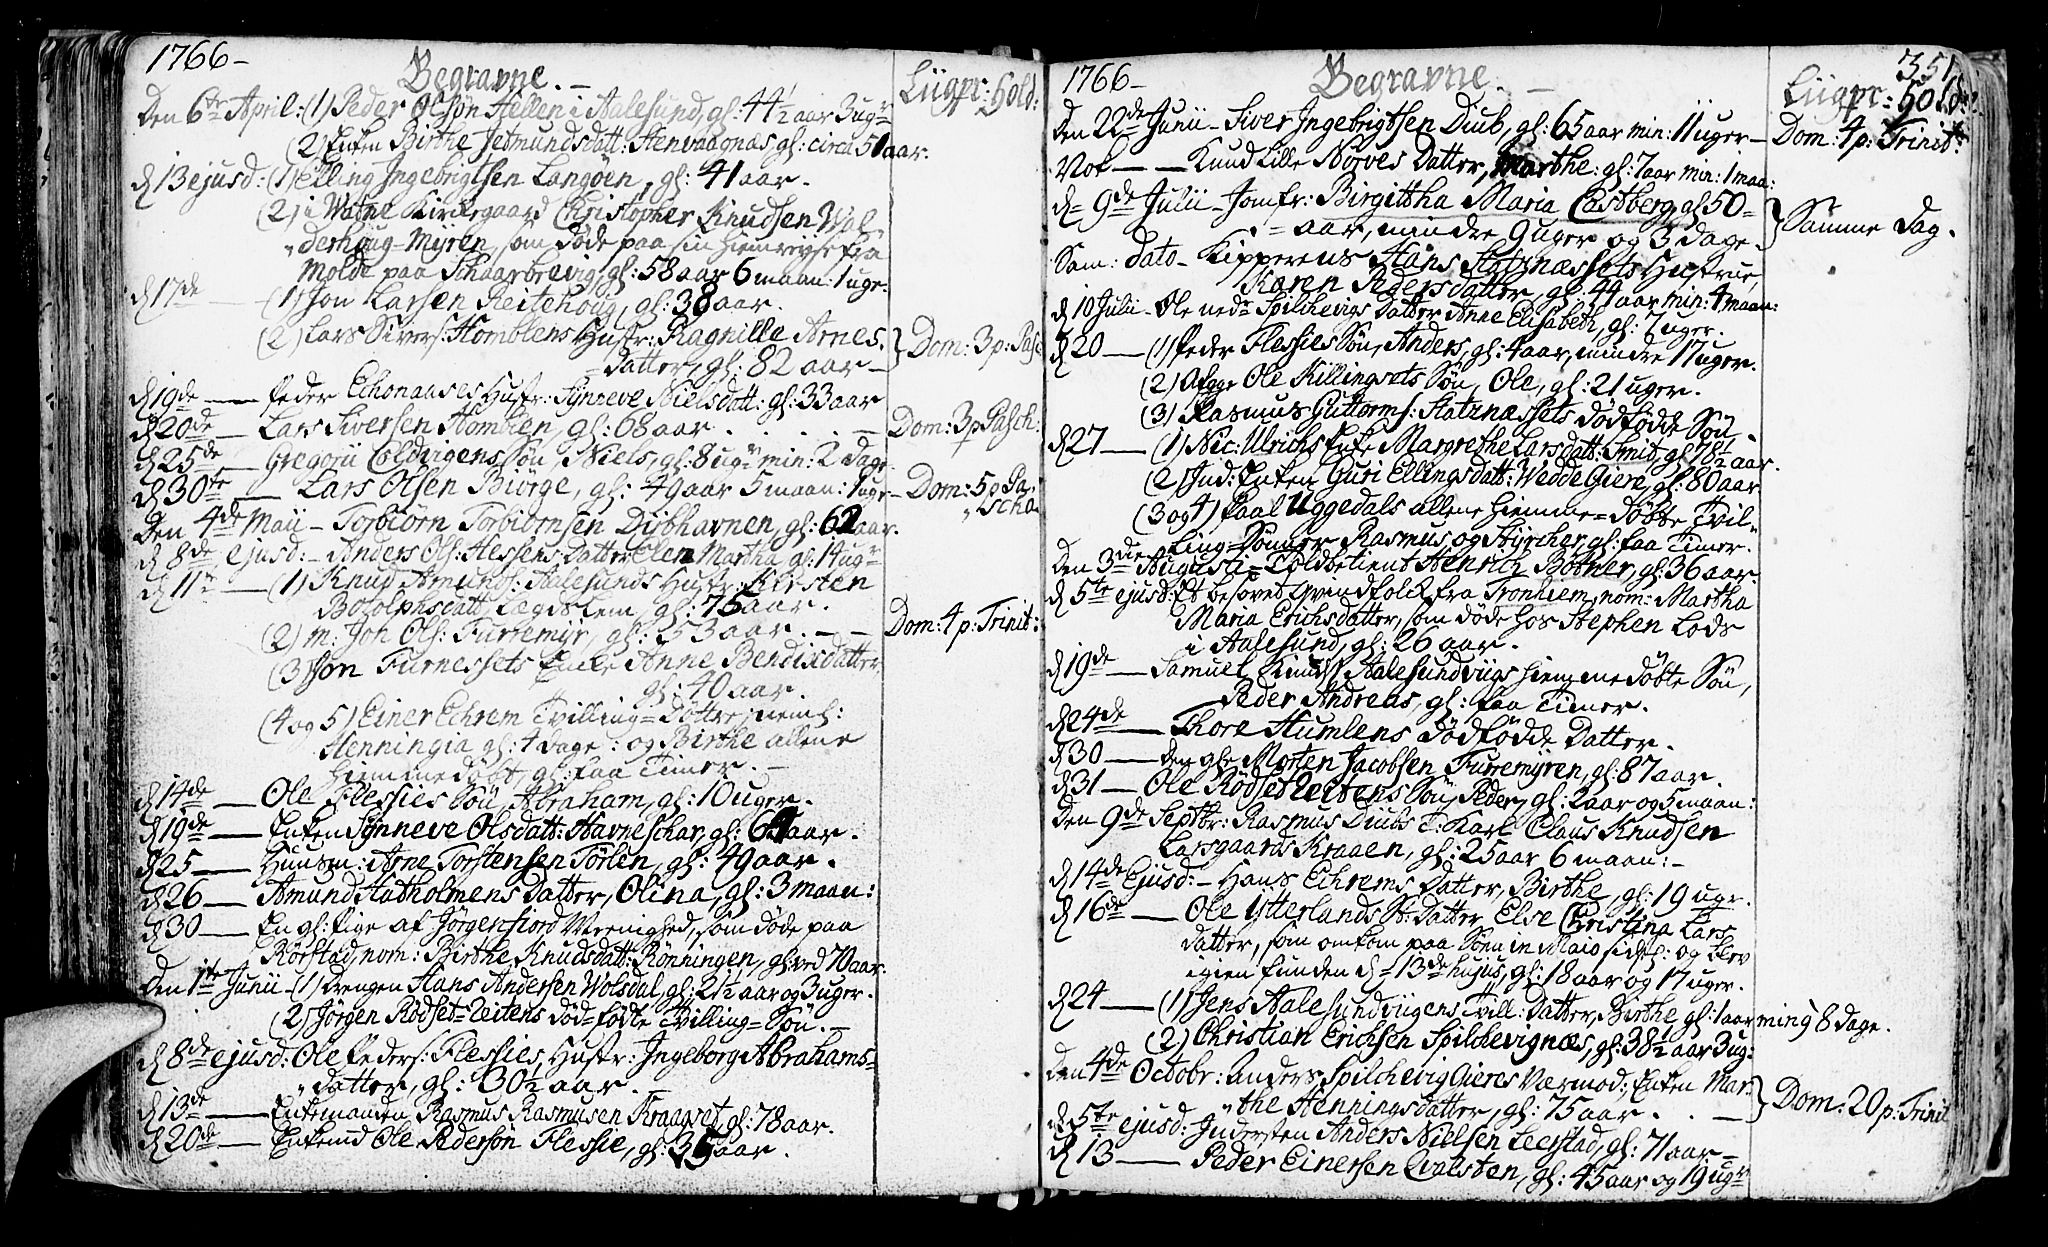 1766 –
Begravne. –
Liigpr: Hold:
Den 6te April: (1) Peder Olson Hellen i Aalesund, gl: 44½ aar 3 ugr
(2) Enken Birthe Jetmundsdatt: Stenvaagnæs gl: circa 50 aar.
d 13 ejusd: (1) Elling Ingebrigtsen Langöen, gl: 41 aar.
(2) i Watne Kirkegaard Christopher Knudsen Wol-
derhoug-Myren, som döde paa sin hiemreyse fra
Molde paa Skaarbrevig, gl: 58 aar 6 maan: 1 uge.
d 17de — (1) Jon Larsen Reitehoug, gl: 38 aar.
(2) Lars Sivers: Homblens Hustr: Ragnille Arnes-
datter, gl: 82 aar –
Dom: 3 p: Pasc
d 19de — Peder Echonaases Hustr: Synneve Nielsdatt: gl: 33 aar
d 20de — Lars Siversen Homblen, gl: 68 aar . . . . –
Dom: 3 p Pasch:
d 25de — Gregorii Coldvigens Sön, Niels, gl: 8 ugr min: 2 dage
d 30te — Lars Olsen Biorge, gl: 49 aar 5 maan: 1 uge –
Dom: 5 p Pa-
scha
Den 4de Maii – Torbiörn Torbiörnsen Dybhavnen, gl: 62 aar.
d 8de ejusd: – Anders Ols: Hessens Datter Elen Martha gl: 14 ugr
d 11te — (1) Knud Amunds: Aalesunds Hustr: Kiersten
Botolphsdatt: Lægdslem, gl: 75 aar.
(2) m: Jon Ols: Furremyr, gl: 53 aar. – –
Dom: 4 p: Trinit:
(3) Jon Furnessets Enke Anne Bendixdatter
gl: 40 aar.
(4 og 5) Einer Echrem Tvilling-Döttre, neml:
Henningia gl: 4 dage : og Birthe allene
hiemmedöbt, gl: faa Timer. –
d 14de — Ole Flessies Sön, Abraham, gl: 10 uger.
d 19de — Enken Synneve Olsdatt: Havneschar, gl: 64 aar.
d 25 — Huusm: Arne Torstensen Törlen, gl: 49 aar.
d 26 — Amund Aatholmens Datter, Olina, gl: 3 maan:
d 30 — En gl: Pige af Jörgenfiord Meenighed, som döde paa
Rörstad, nom: Birthe Knudsdatt: Rönningen, gl: ved 70 aar.
Den 1te Junii – (1) Drengen Hans Andersen Wolsdal, gl: 21½ aar og 3 uger.
(2) Jörgen Rödset-Reitens död-födte Tvilling-Sön. –
d 8de ejusd: Ole Peders: Flessies, Hustr: Ingeborg Abrahams-
datter, gl: 30½ aar. –
d 13de — Enkemanden Rasmus Rasmusen Kraavet, gl: 78 aar.
d 20de — Enkemd Ole Pedersön Flessie, gl: 35 aar.
1766 –
Begravne. –
351
Liigpr: Hold:
Den 22de Junii – Siver Ingebrigtsen Dub, gl: 65 aar min: 11 uger –
Dom: 4 p: Trinit:
Not — – Knud Lille Nörves Datter, Marthe: gl: 7 aar min: 1 maa:
d 9de Julii – Jomfr: Birgittha Maria Castberg, gl 50-
aar, mindre 9 uger og 3 dage –
Samme Dag.
Sam: dato – Kipperens Hans Statznæssets Hustrue,
Karen Pedersdatter, gl: 44 aar min: 4 maan:
d 10 Julii – Ole nedr Spilchevigs Datter Anne Elisabeth, gl: 7 uger.
d 20 — (1) Peder Flessies Sön, Anders, gl: 4 aar, mindre 17 uger.
(2) Ole Killingsets Sön, Ole, gl: 21 uger.
(3) Rasmus Guttorms: Statznæssets dödfödde Sön.
d 27 — (1) Nic: Ulrichs Enke Margrethe Larsdatt: Smit, gl 78½ aar.
(2) Ind: Enken Guri Ellingsdatt: Wedde Giere, gl: 80 aar
(3 og 4) Paal Uggedals allene hiemme-döbte Tvil-
ling-Sönner Rasmus og Styrcher, gl: faa Timer.
Den 3die Augusti – Toldbetient Henrich Botner, gl: 36 aar.
d 5te ejusd: Et besovet Qvindfolck fra Tronhiem, nom: Martha
Maria Erichsdatter, som döde hos Stephen Lods
i Aalesund, gl: 26 aar.
d 19de — Samuel Knuds: Aalesundviigs hiemmedöbte Sön,
Peder Andreas, gl: faa Timer.
d 24de — Thore Humlens dödfödde Datter.
d 30 — den gle Morten Jacobsen Furremyren, gl: 87 aar.
d 31 — Ole Rödset Reitens Sön, Peder, gl: 2 aar og 5 maan:
Den 9de Septbr: Rasmus Duubs T: Karl Claus Knudsen
Larsgaards Kraaen, gl: 25 aar 6 maan: –
d 14de Ejusd: – Hans Echrems Datter, Birthe, gl: 19 ugr.
d 16de — Ole Ytterlands St: Datter Else Christina Lars
datter, som omkom paa Söen in Maio sidstl: og blev
igien funden d – 13de hujus, gl: 18 aar og 17 uger.
d 24 — (1) Jens Aalesundviigens Tvill: Datter, Birthe gl: 1 aar mindr 8 dage.
(2) Christian Erichsen Spilchevignæs, gl: 38½ aar 3 ug:
Den 4de Octobr: Anders Spilchevig Gieres Værmod: Enken Mar-
the Henningsdatter, gl: 75 aar . . –
Dom: 20 p: Trinit
d 5te ejusd: Indersten Anders Nielsen Leerstad, gl: 71 aar –
d 13 — Peder Einersen Qvalsten, gl: 45 aar og 19 ugr